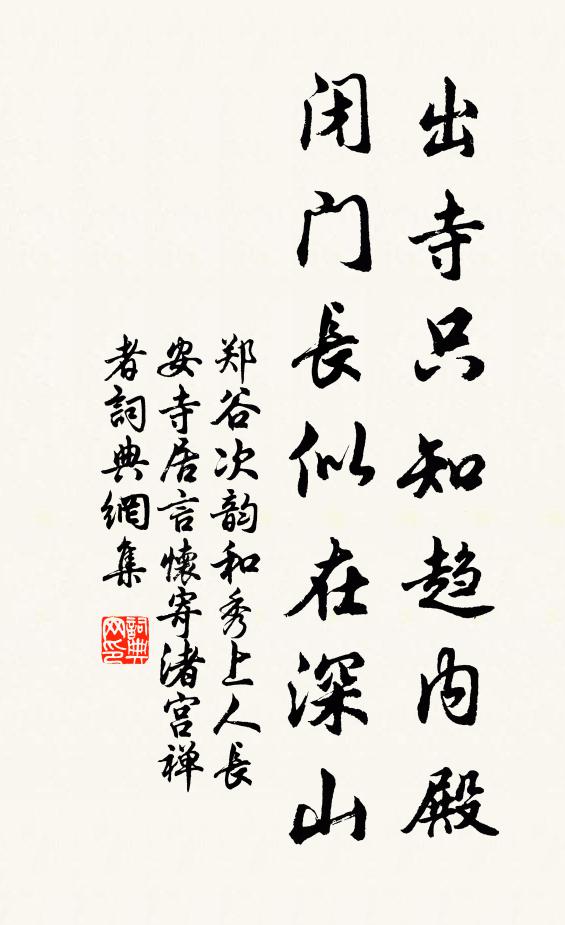 出寺只知趋内殿
闭门長似在深山
郑谷次韵和秀上人長
安寺居言懷寄渚宫禅
者詞典網集
詞典
网印